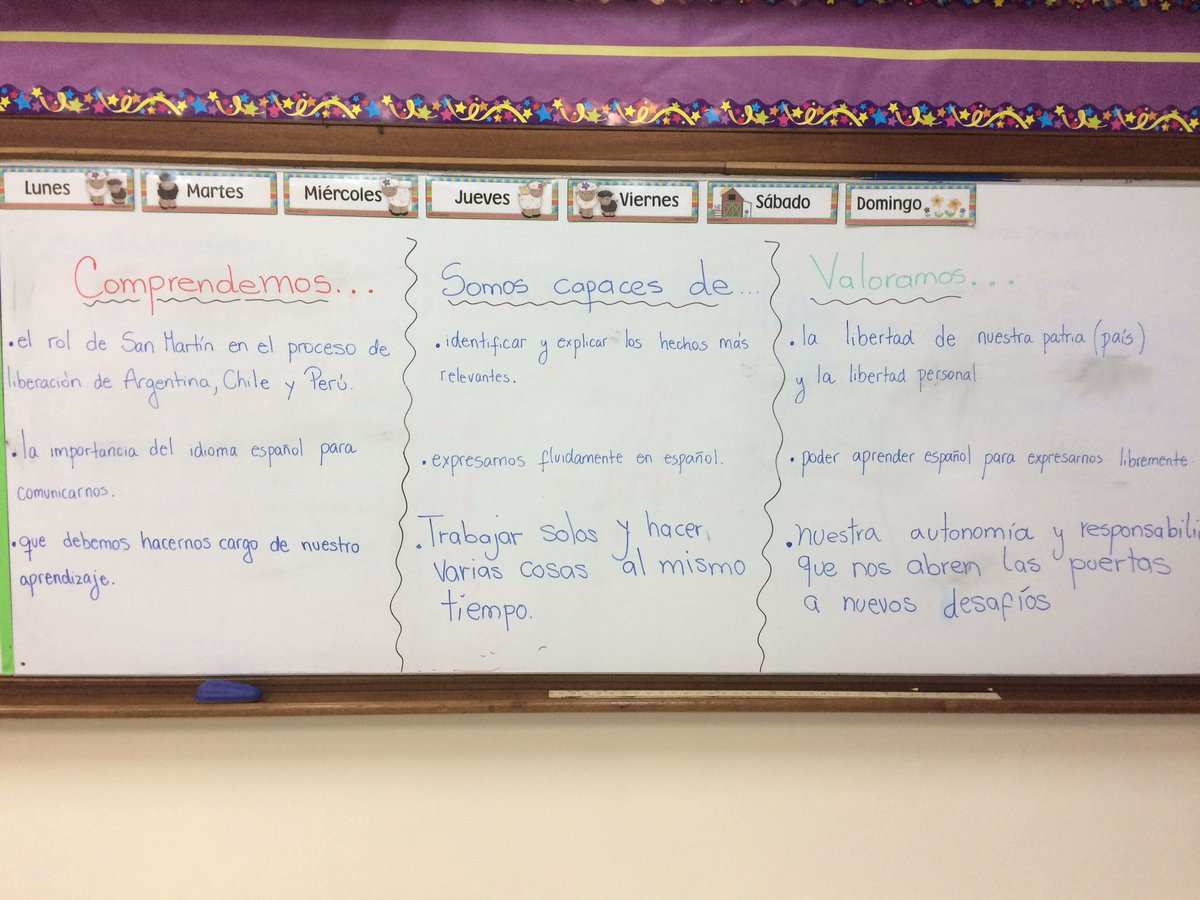 Lunes
Martes
Miércoles
Jueves
Viernes
Sábado
Domingo
Comprendemos...
• el rol de San Martín en el proceso de
liberación de Argentina, Chile y Perú.
• la importancia del idioma español para
comunicarnos.
• que debemos hacernos cargo de nuestro
aprendizaje.
Somos capaces de...
• identificar y explicar los hechos más
relevantes.
• expresarnos fluidamente en español.
• Trabajar solos y hacer
varias cosas al mismo
tiempo.
Valoramos...
• la libertad de nuestra patria (país)
y la libertad personal.
• poder aprender español para expresarnos libremente.
• nuestra autonomía y responsabili
que nos abren las puertas
a nuevos desafíos